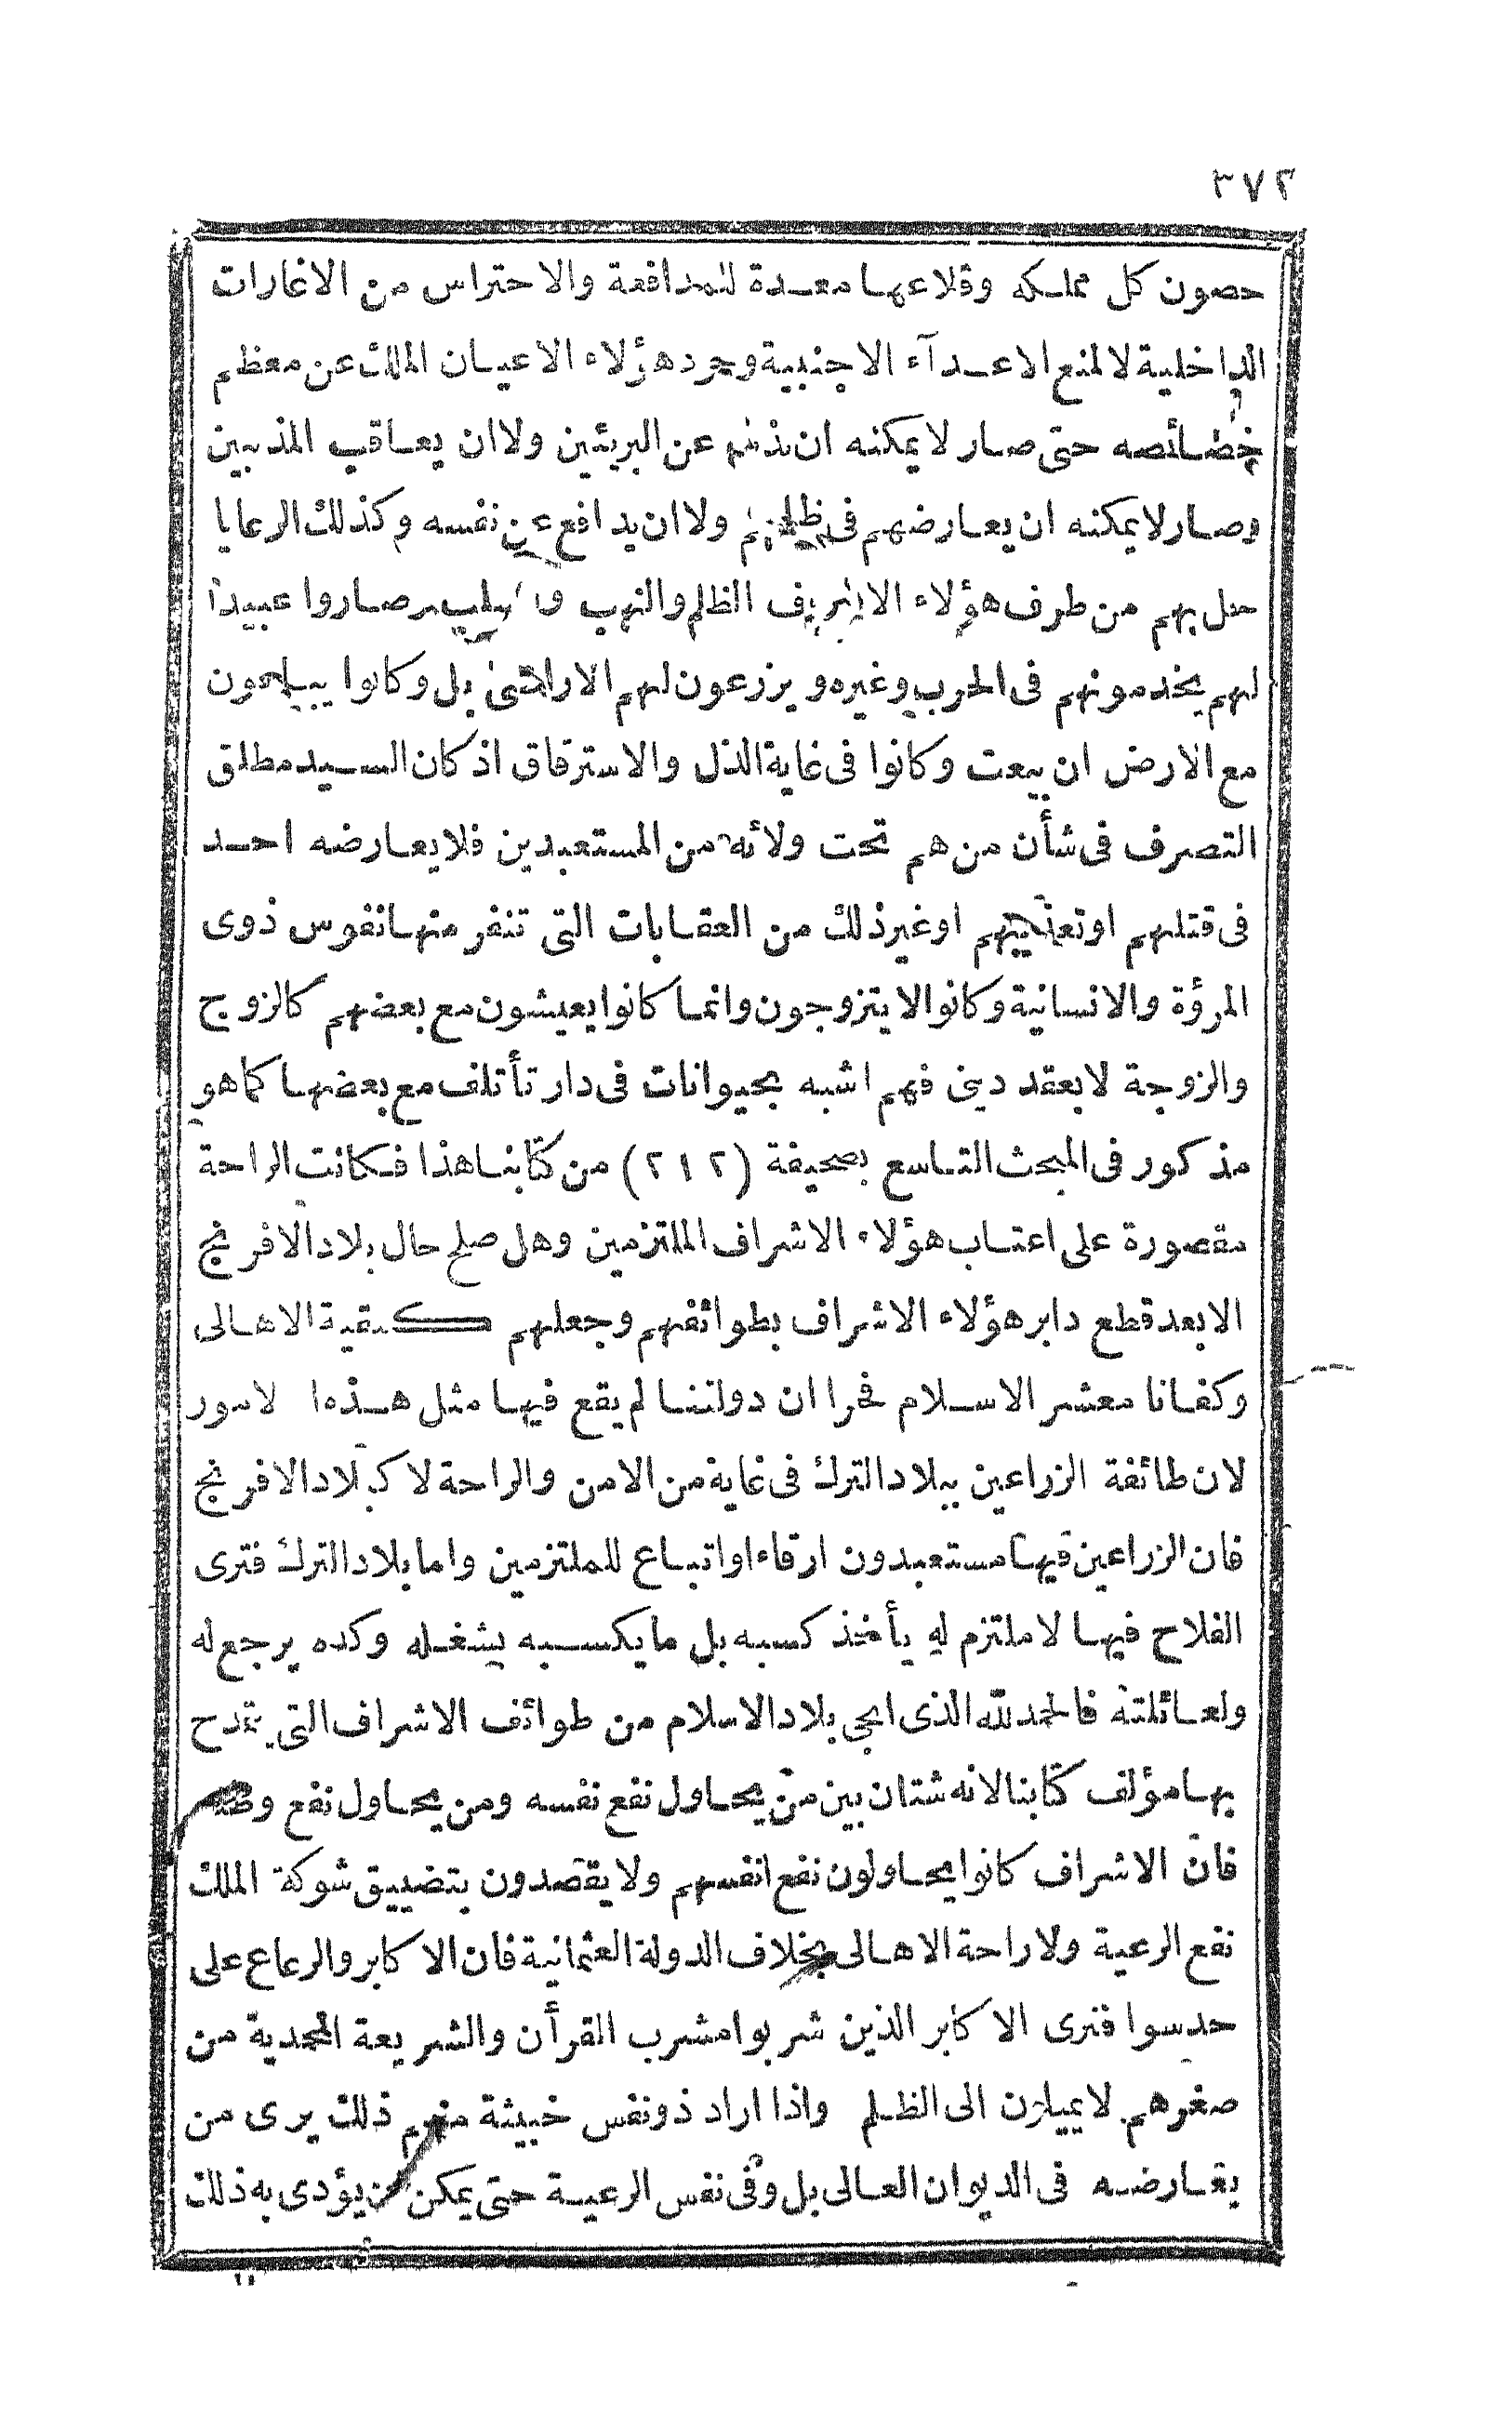 ٣٧٢
حصون كل مملكه وقلاعها معدة للمدافعة والاحتراس من الاغارات
الداخلية لا لمنع الاعدآء الاجنبية وجرد هؤلاء الاعيان الملك عن معظم
خصائصه حتى صار لا يمكنه ان عن البريئين ولا ان يعاقب المذنبين
وصار لا يمكنه ان يعارضهم فى ظلمهم ولا ان يدافع عن نفسه وكذلك الرعايا
حل بهم من طرف هؤلاء الظلم والنهب والسلب وصاروا عبيدا
لهم يخدمونهم فى الحرب وغيره ويزرعون لهم الاراضى بل وكانوا يبيعون
مع الارض ان بيعت وكانوا فى غاية الذل والاسترقاق اذ كان السيد مطلق
التصرف فى شأن من هم تحت ولائه من المستعبدين فلا يعارضه احد
فى قتلهم او تعذيبهم او غير ذلك من العقابات التى تنفر منها نفوس ذوى
المرؤة والانسانية وكانوا لا يتزوجون وانما كانوا يعيشون مع بعضهم كالزوج
والزوجة لا بعقد دينى فهم اشبه بحيوانات فى دار تأتلف مع بعضها كما هو
مذكور فى المبحث التاسع بصحيفة (٢١٢) من كتابنا هذا فكانت الراحة
مقصورة على اعتاب هؤلاء الاشراف الملتزمين وهل صلح حال بلاد الافرنج
الا بعد قطع دابر هؤلاء الاشراف بطوائفهم وجعلهم كبقية الاهالى
وكفانا معشر الاسلام فخرا ان دولتنا لم يقع فيها مثل هذه الامور
لان طائفة الزراعين ببلاد الترك فى غاية من الامن والراحة لا كبلاد الافرنج
فان الزراعين فيها مستعبدون ارقاء او اتباع للملتزمين واما بلاد الترك فترى
الفلاح فيها لا ملتزم له يأخذ كسبه بل ما يكسبه بشغله وكده يرجع له
ولعائلته فالحمد لله الذى انجى بلاد الاسلام من طوائف الاشراف التى يتمدح
بها مؤلف كتابنا لانه شتان بين من يحاول نفع نفسه ومن يحاول نفع وطنه
فان الاشراف كانوا يحاولون نفع انفسهم ولا يقصدون بتضييق شوكة الملك
نفع الرعية ولا راحة الاهالى بخلاف الدولة العثمانية فان الاكابر والرعاع على
حد سوا فترى الاكابر الذين شربوا مشرب القرأن والشريعة المحمدية من
صغرهم لا يميلون الى الظلم واذا اراد ذو نفس خبيثة منهم ذلك يرى من
يعارضه فى الديوان العالى بل وفى نفس الرعية حتى يمكن ان يؤدى به ذلك